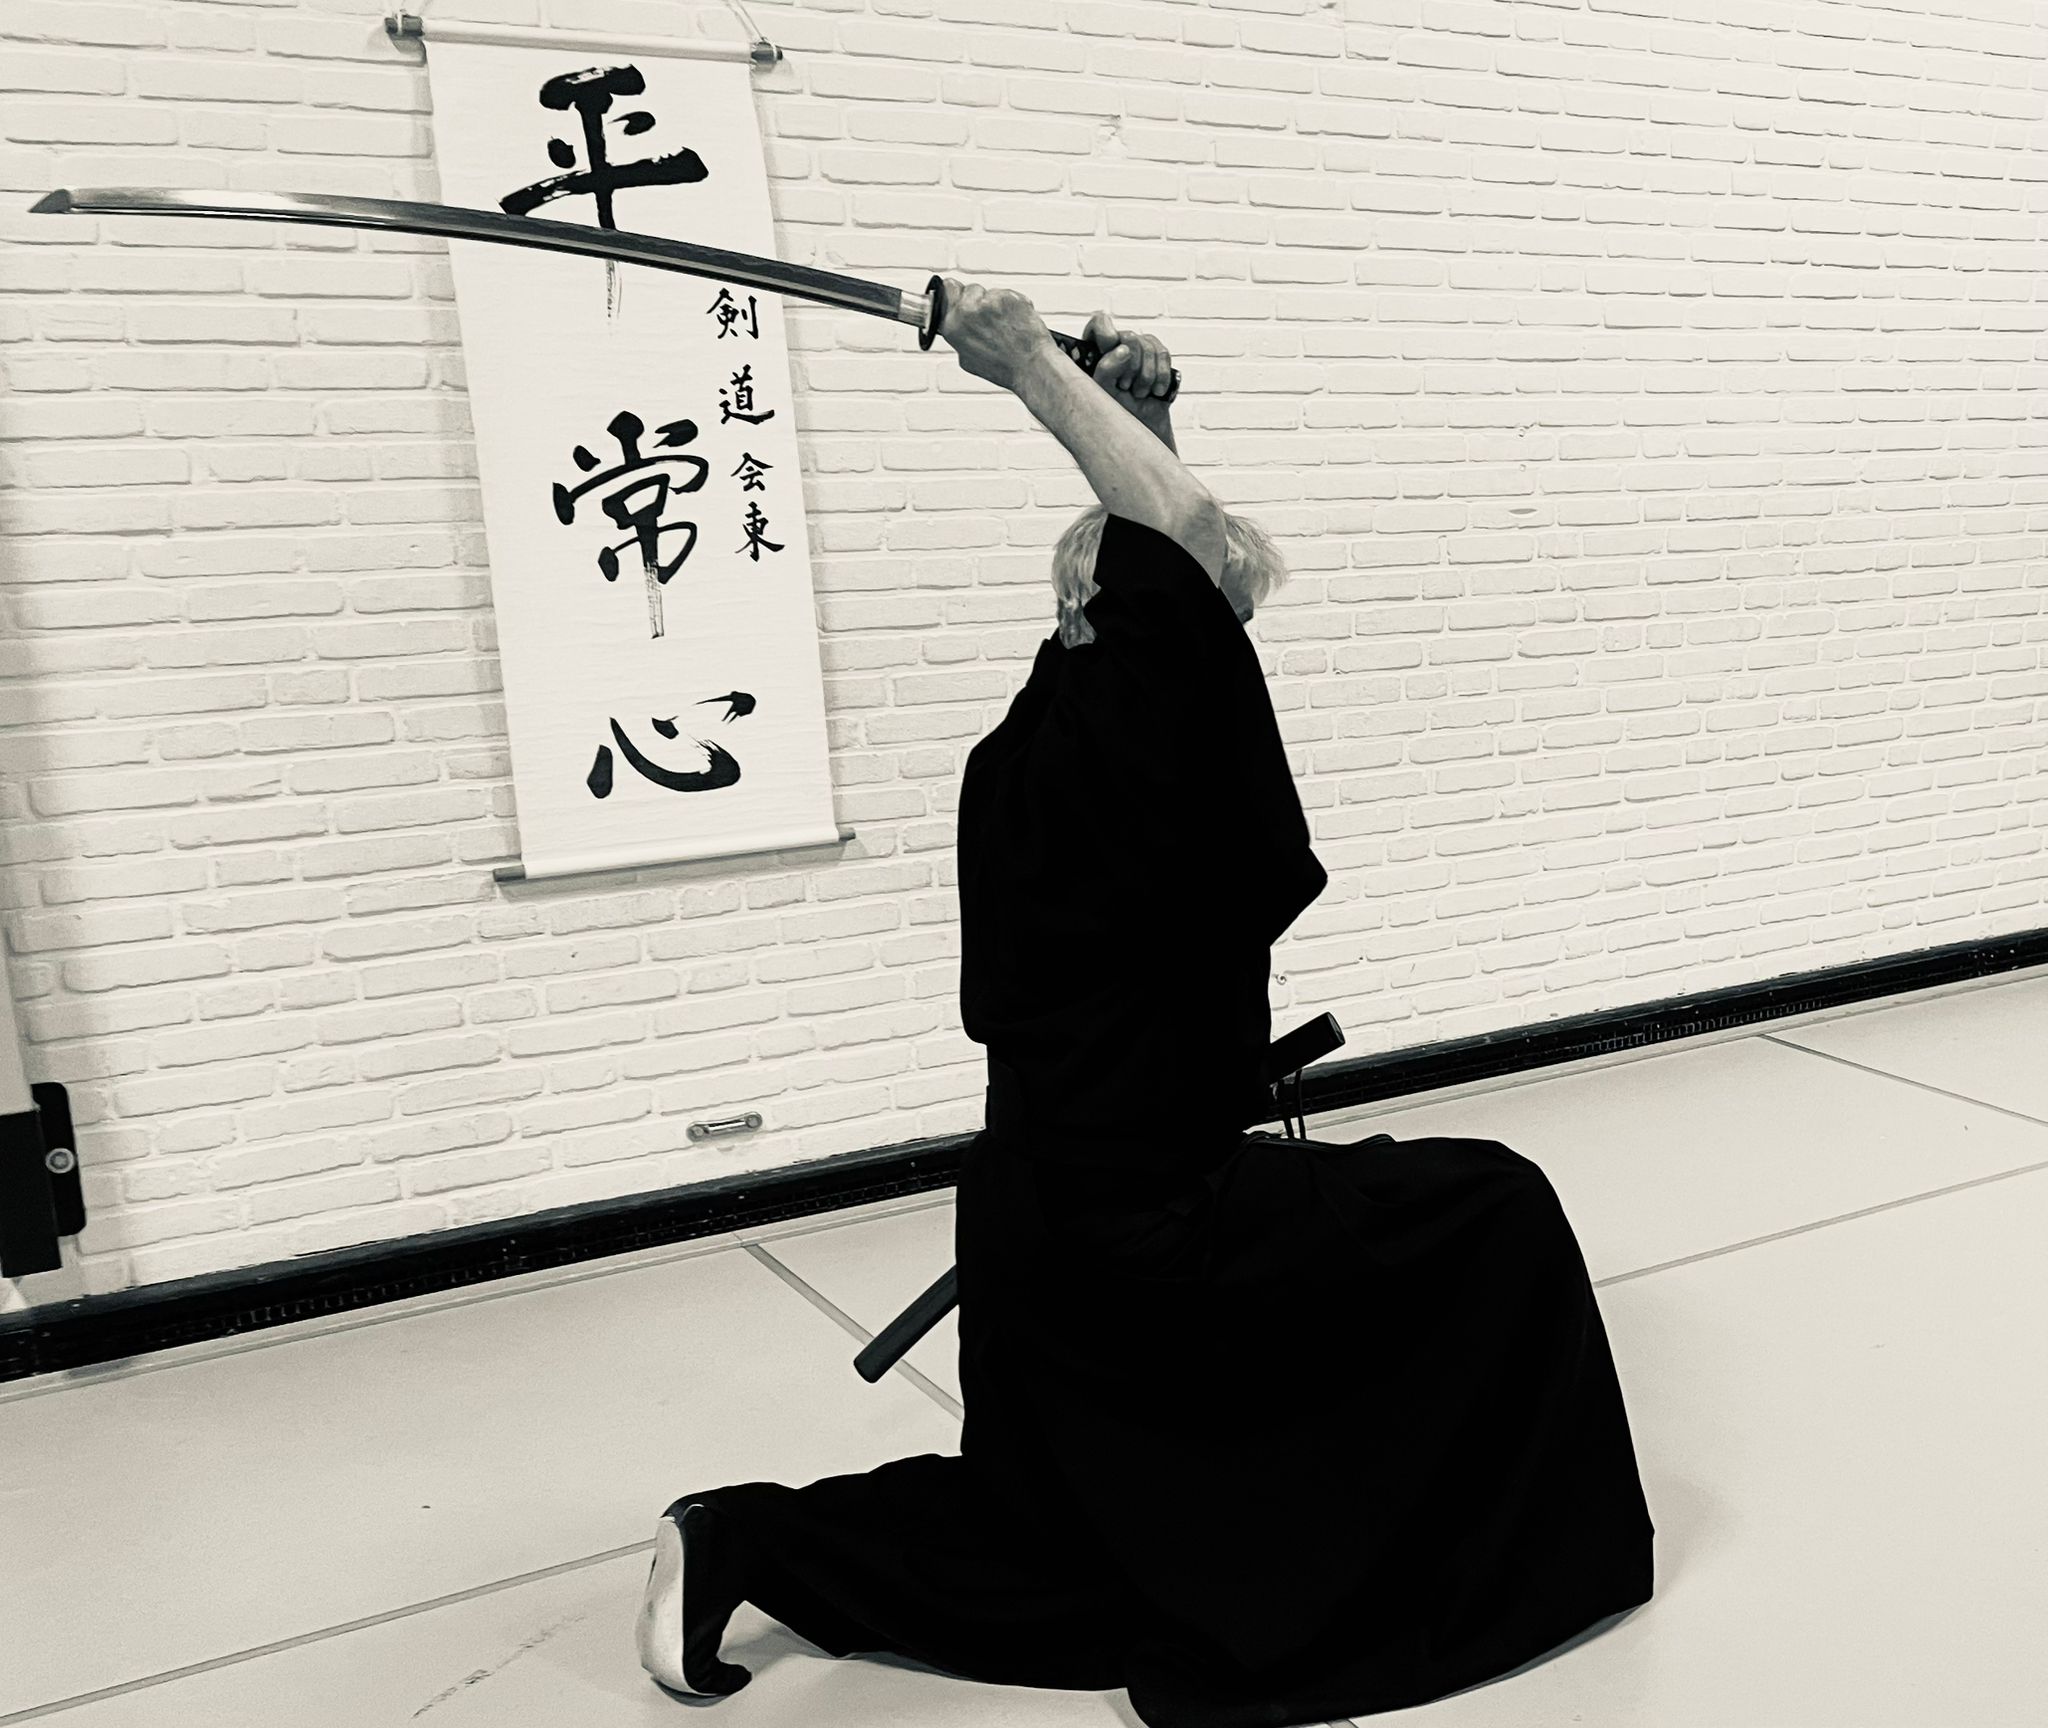 剣道会東
平常心